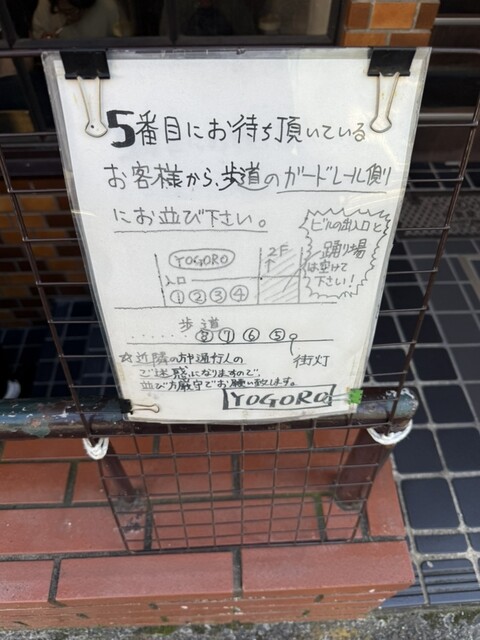 5番目にお待ち頂いている
お客様から、歩道のガードレール側
にお並び下さい。
ビルの出入口と
踊り場
は空けて
下さい!
YOGORO
2F
↑
入口
① ② ③ ④
歩道
・・・・・・ ⑧ ⑦ ⑥ ⑤
街灯
☆近隣の方や通行人の
ご迷惑になりますので、
並び方厳守でお願い致します。
YOGORO